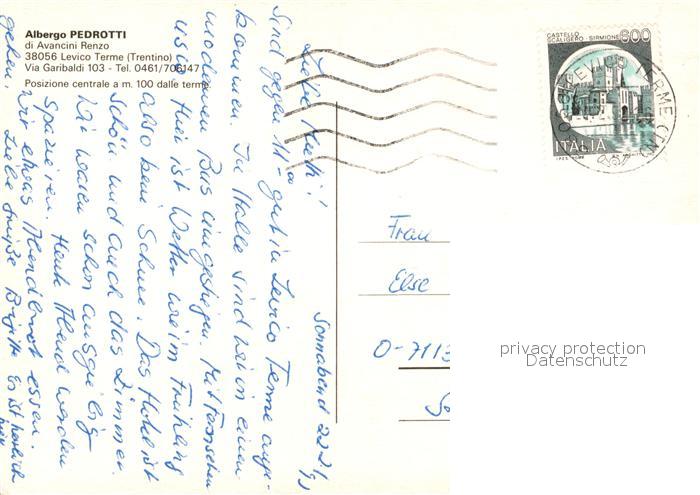 Albergo PEDROTTI
di Avancini Renzo
38056 Levico Terme (Trentino)
Via Garibaldi 103 - Tel. 0461/706147
Posizione centrale a m. 100 dalle terme
CASTELLO
SCALIGERO - SIRMIONE
600
ITALIA
LEVICO TERME (TN)
Sonnabend 22.2.
Liebe
sind gegen 11 gut in Levico Terme ange-
kommen. In Halle sind wir in einen
modernen Bus umgestiegen. Mit Fernsehen
usw. Hier ist Wetter wie im Frühling
also kein Schnee. Das Hotel ist
schön und auch das Zimmer.
Wir waren schon ausgiebig
spazieren. Heute Abend werden
wir etwas Abendbrot essen.
gehen.
Liebe Grüße Brigitte Es ist herrlich
hier
Frau
Else
O-7113
privacy protection
Datenschutz